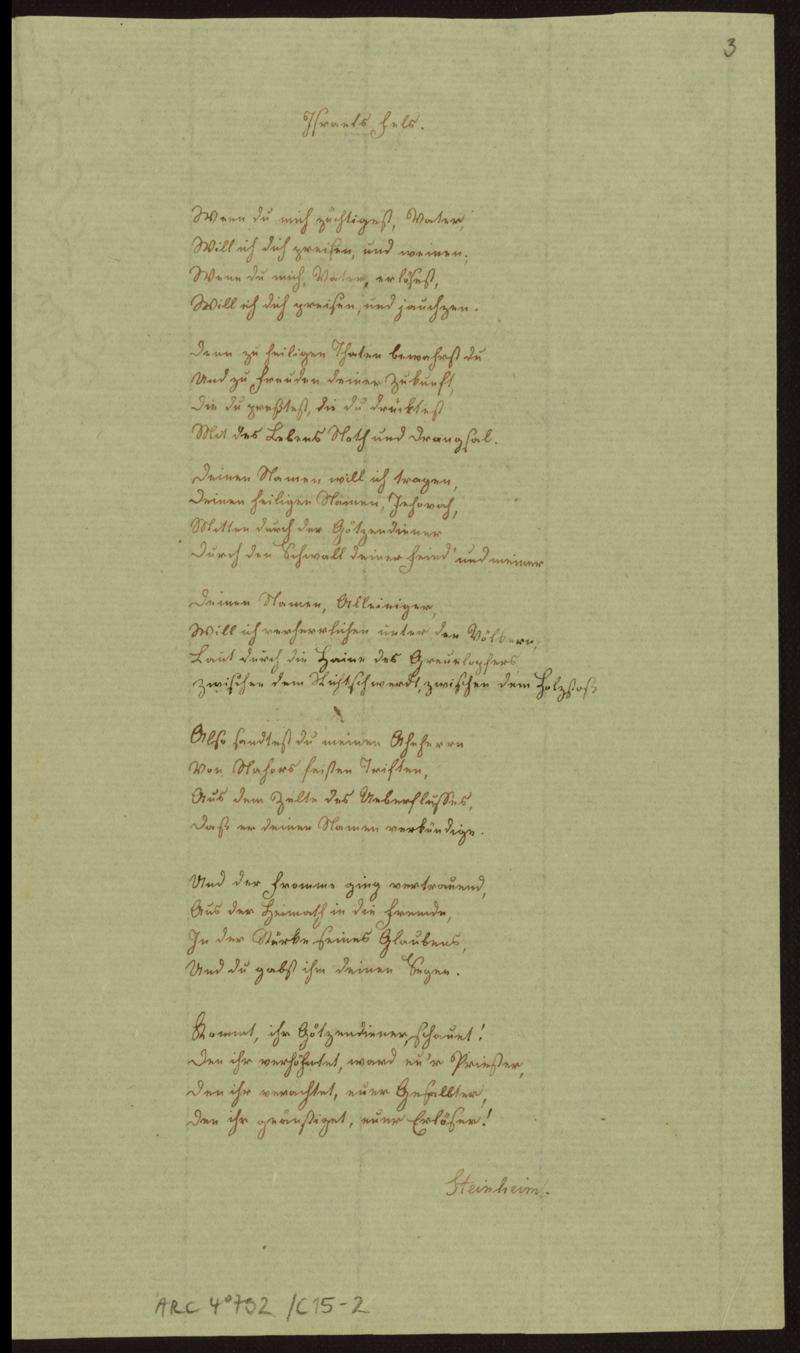 3
Israels Fels.
Wenn du mich züchtigest, Vater,
Will ich dich preisen, und weinen;
Wenn du mich, Vater, erlösest,
Will ich dich preisen, und jauchzen.
Denn zu heiligen Thaten bewahrst du
Und zu Freuden deiner Zukunft,
Die du preßtest, die du drücktest
Mit des Lebens Noth und Drangsal.
Deinen Namen will ich tragen,
Deinen heiligen Namen, Jehovah,
Mitten durch der Götzendiener
Durch den Schwall deiner Feind' und meiner
Deinen Namen, Alleiniger,
Will ich verherrlichen unter den Völkern,
Laut durch die Haine des Greuelopfers
Zwischen dem Richtschwerdt, zwischen dem Holzstoß
Also sandtest du meinen Ahnherrn
Von Nahors feisten Triften,
Aus dem Zelte des Ueberflusses,
Daß er deinen Namen verkündige.
Und der Fromme ging vertrauend,
Aus der Heimath in die Fremde,
In der Stärke seines Glaubens,
Und du gabst ihm deinen Segen.
Kommt, ihr Götzendiener, schauet!
Den ihr verhöhntet, ward eu'r Priester,
Den ihr verachtet, euer Gesalbter,
Den ihr geänstiget, euer Erlöser!
Steinheim.
ARC 4° 792 /C15-2